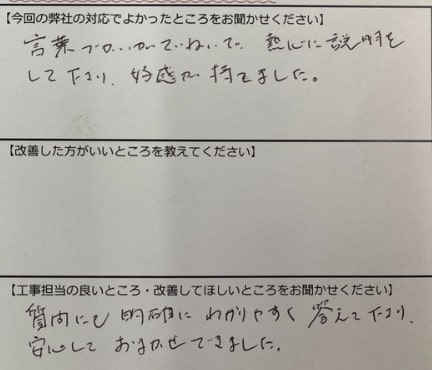 【今回の弊社の対応でよかったところをお聞かせください】
言葉づかいがていねいで、熱心に説明を
して下さり、好感が持てました。
【改善した方がいいところを教えてください】
【工事担当の良いところ・改善してほしいところをお聞かせください】
質問にも明確にわかりやすく答えて下さり、
安心しておまかせできました。